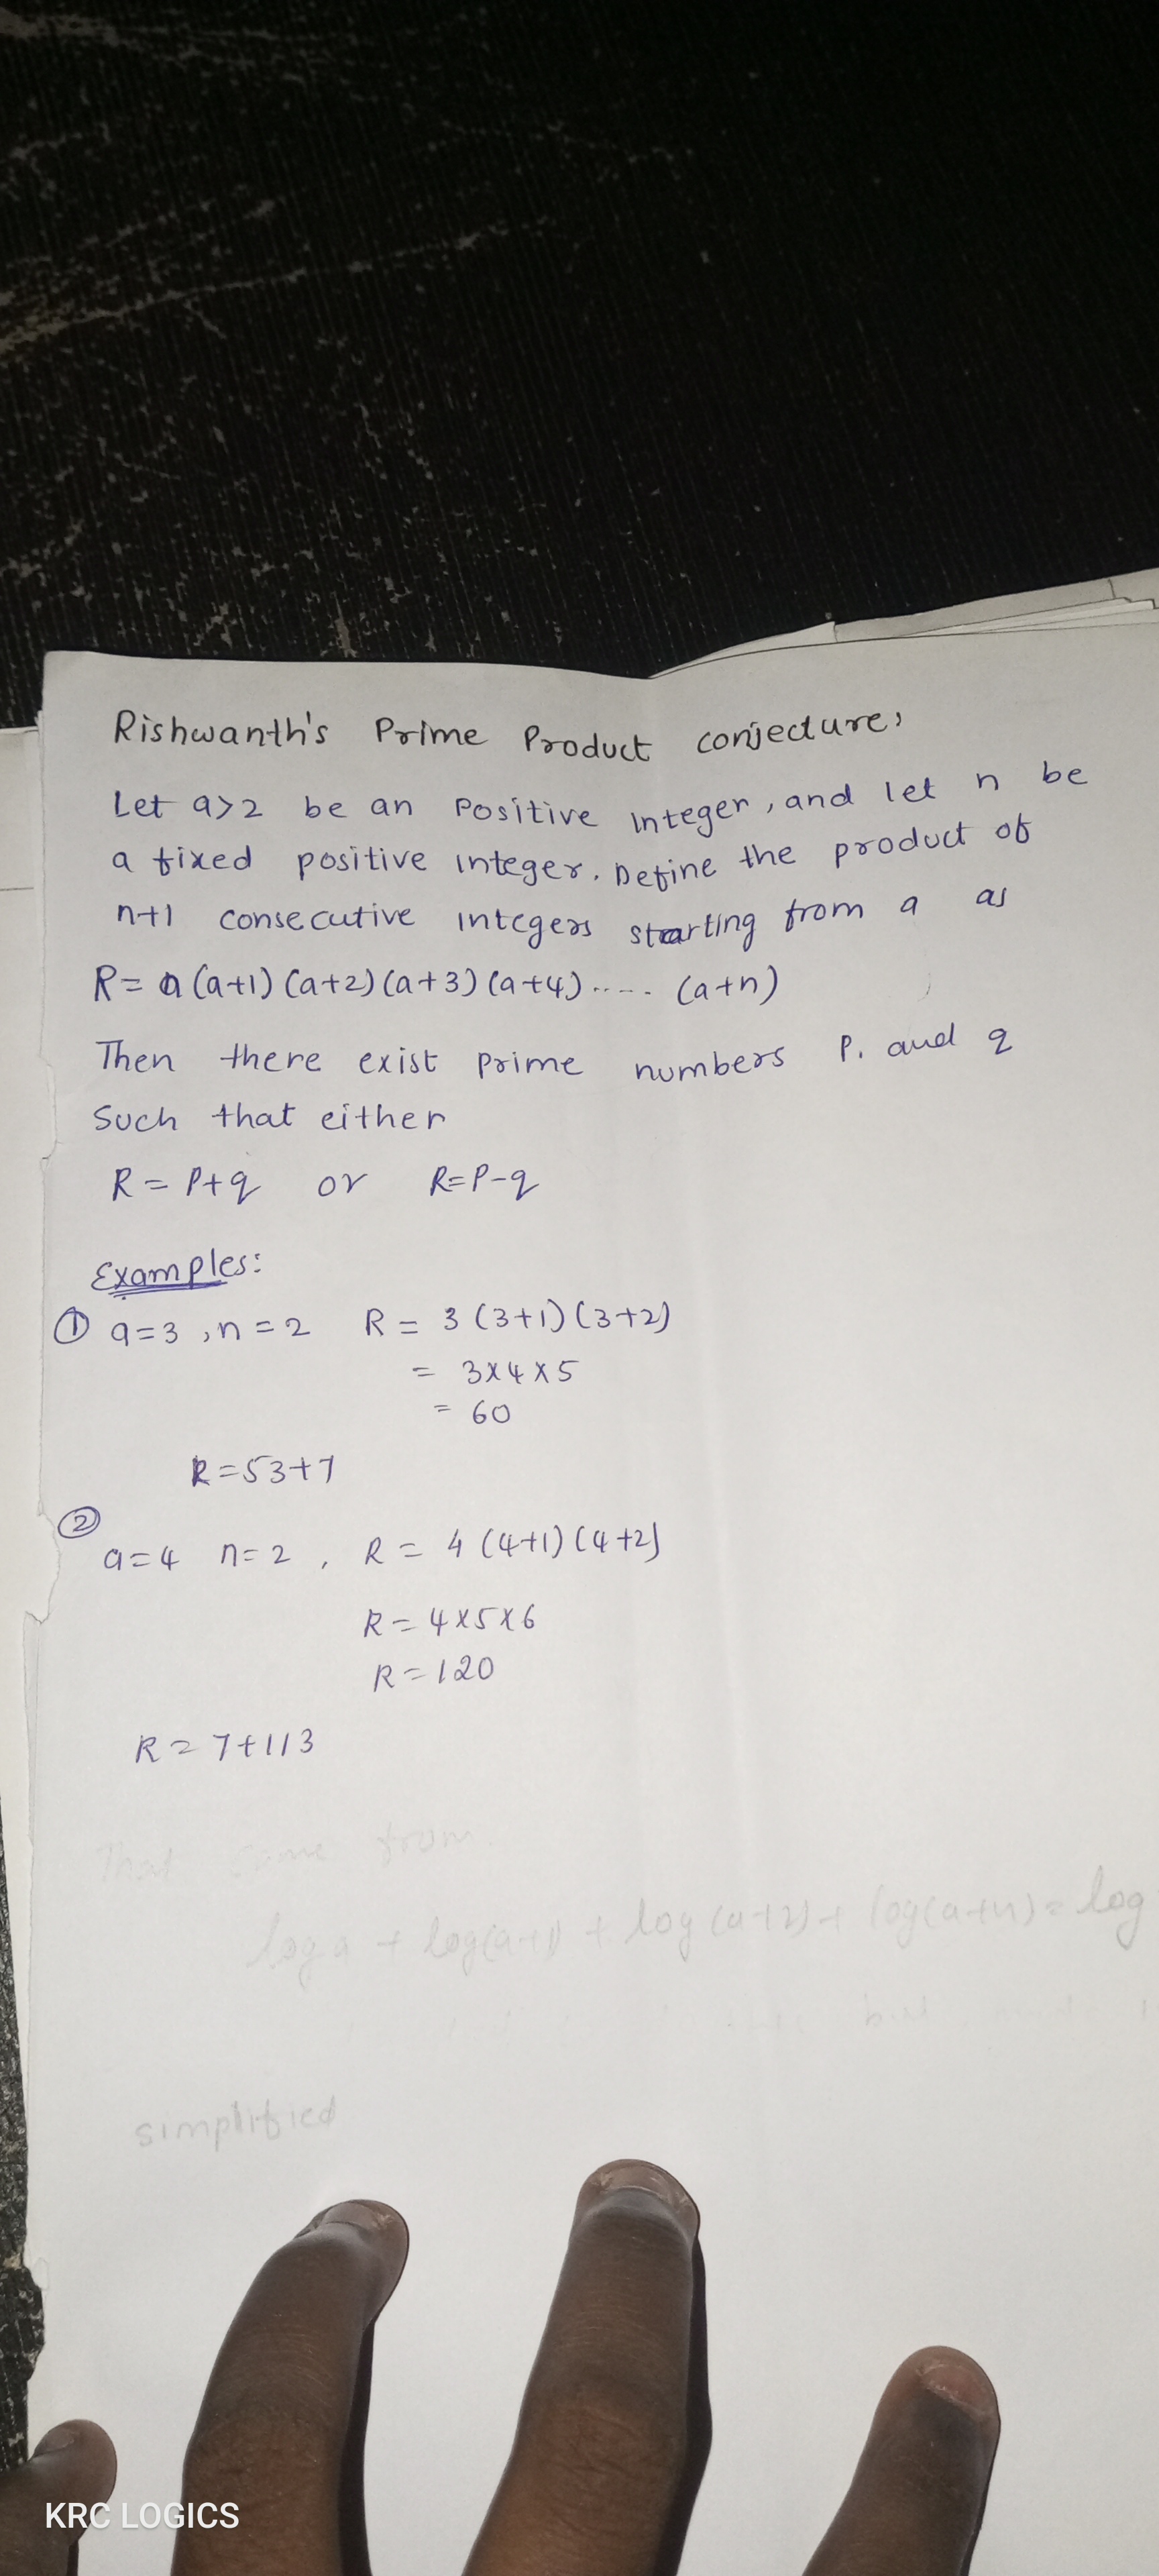 Rishwanth's Prime Product conjecture,
Let a>2 be an Positive integer, and let n be
a fixed positive integer. Define the product of
n+1 consecutive integers starting from a as
R= a(a+1)(a+2)(a+3)(a+4)..... (a+n)
Then there exist prime numbers P. and q
Such that either
R = P+q or R=P-q
Examples:
① a=3, n=2 R = 3(3+1)(3+2)
= 3x4x5
= 60
R=53+7
②
a=4 n=2, R = 4(4+1)(4+2)
R=4x5x6
R=120
R=7+113
That from.
log a + log(a+1) + log(a+2) + log(a+n) = log
simplified
KRC LOGICS